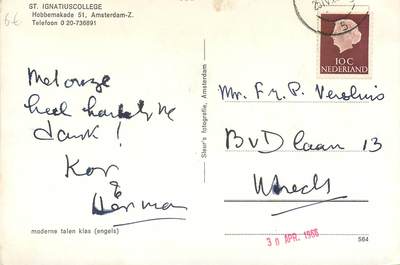 ST. IGNATIUSCOLLEGE
Hobbemakade 51, Amsterdam-Z.
Telefoon 0 20-736891
Met onze
heel hartelijke
dank!
Kor
&
Herman
moderne talen klas (engels)
Sleur's fotografie, Amsterdam
5
10 C
NEDERLAND
Mr. F. P. Versluis
BvD laan 13
Utrecht
30 APR. 1966
564